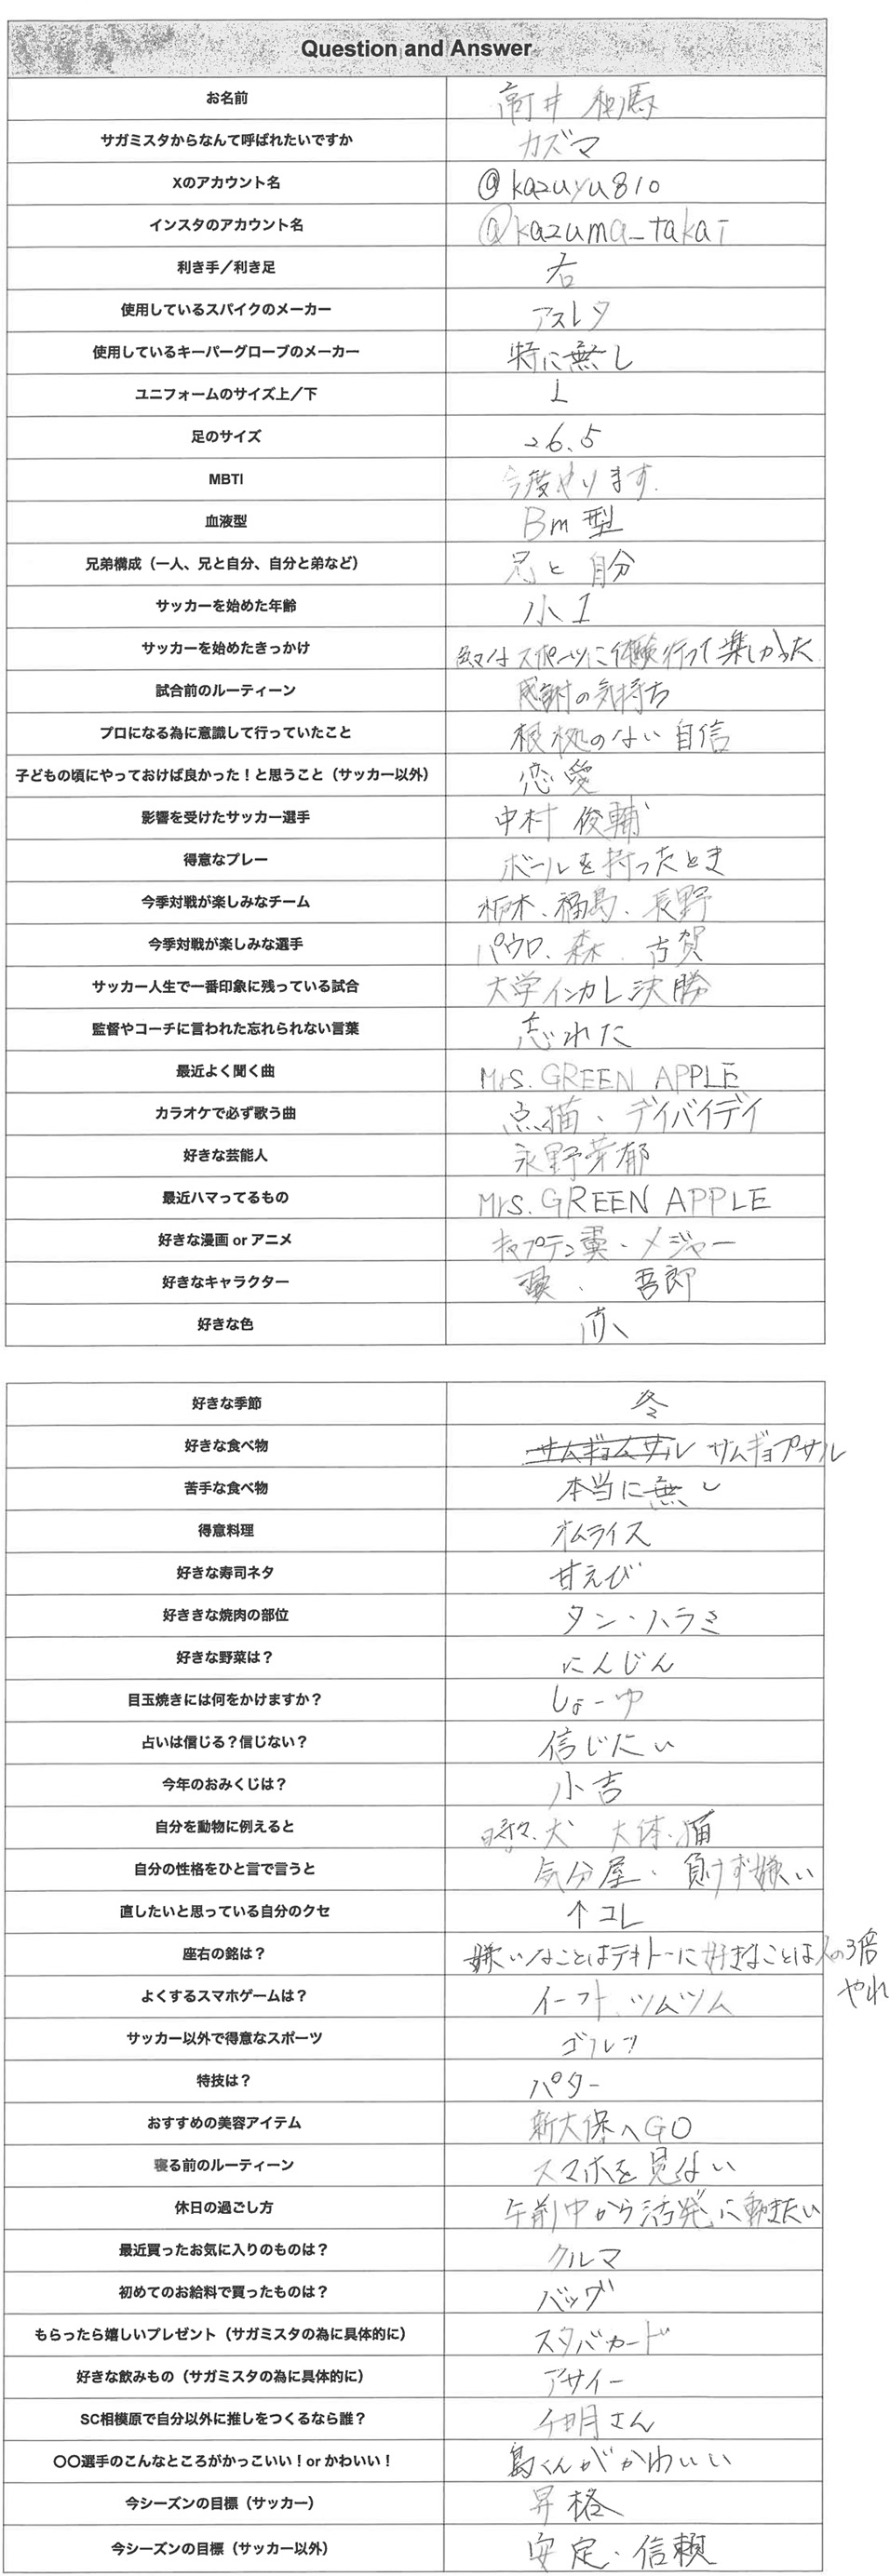 Question and Answer
お名前 高井 和馬
サガミスタからなんて呼ばれたいですか カズマ
Xのアカウント名 @kazuyu810
インスタのアカウント名 @kazuma_takai
利き手／利き足 右
使用しているスパイクのメーカー アスレタ
使用しているキーパーグローブのメーカー 特に無し
ユニフォームのサイズ上／下 L
足のサイズ 26.5
MBTI 今度やります.
血液型 Bm型
兄弟構成（一人、兄と自分、自分と弟など） 兄と 自分
サッカーを始めた年齢 小1
サッカーを始めたきっかけ 色々なスポーツに体験行って楽しかった
試合前のルーティーン 感謝の気持ち
プロになる為に意識して行っていたこと 根拠のない自信
子どもの頃にやっておけば良かった！と思うこと（サッカー以外） 恋愛
影響を受けたサッカー選手 中村 俊輔
得意なプレー ボールを持ったとき
今季対戦が楽しみなチーム 栃木、福島、長野
今季対戦が楽しみな選手 パウロ、森、古賀
サッカー人生で一番印象に残っている試合 大学インカレ決勝
監督やコーチに言われた忘れられない言葉 忘れた
最近よく聞く曲 Mrs. GREEN APPLE
カラオケで必ず歌う曲 点描、デイバイデイ
好きな芸能人 永野芽郁
最近ハマってるもの Mrs. GREEN APPLE
好きな漫画 or アニメ キャプテン翼・メジャー
好きなキャラクター 翼、吾郎
好きな色 赤
好きな季節 冬
好きな食べ物 サムギョムサル サムギョプサル
苦手な食べ物 本当に無し
得意料理 オムライス
好きな寿司ネタ 甘えび
好ききな焼肉の部位 タン・ハラミ
好きな野菜は？ にんじん
目玉焼きには何をかけますか？ しょーゆ
占いは信じる？信じない？ 信じたい
今年のおみくじは？ 小吉
自分を動物に例えると 時々、犬 大体、猫
自分の性格をひと言で言うと 気分屋・負けず嫌い
直したいと思っている自分のクセ ↑コレ
座右の銘は？ 嫌いなことはテキトーに好きなことは人の3倍
やれ
よくするスマホゲームは？ イーフト、ツムツム
サッカー以外で得意なスポーツ ゴルフ
特技は？ パター
おすすめの美容アイテム 新大保へGO
寝る前のルーティーン スマホを見ない
休日の過ごし方 午前中から活発に動きたい
最近買ったお気に入りのものは？ クルマ
初めてのお給料で買ったものは？ バッグ
もらったら嬉しいプレゼント（サガミスタの為に具体的に） スタバカード
好きな飲みもの（サガミスタの為に具体的に） アサイー
SC相模原で自分以外に推しをつくるなら誰？ さん
〇〇選手のこんなところがかっこいい！or かわいい！ 島くんがかわいい
今シーズンの目標（サッカー） 昇格
今シーズンの目標（サッカー以外） 安定・信頼